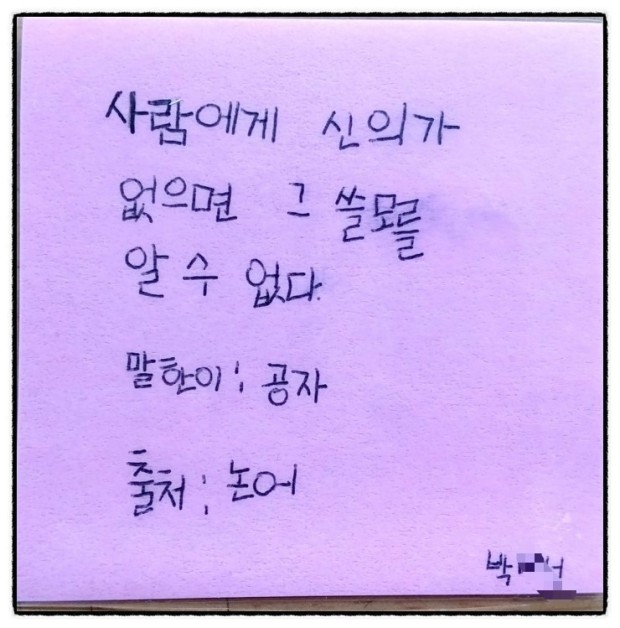 사람에게 신의가
없으면 그 쓸모를
알 수 없다.
말한이 : 공자
출처 : 논어